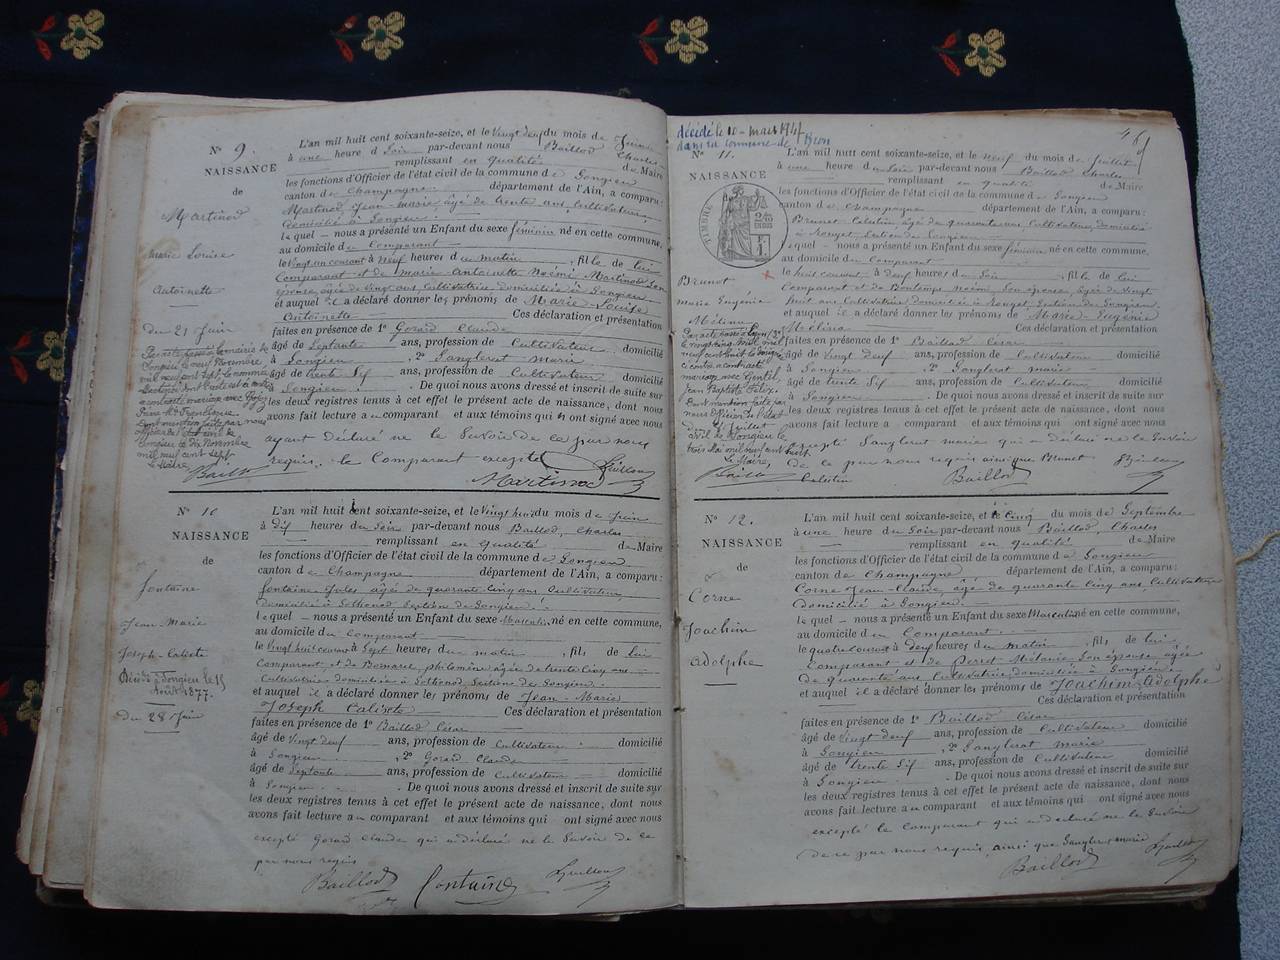 N° 9.
NAISSANCE
de
Martinod
Marie Louise
Antoinette
du 21 Juin
L'an mil huit cent soixante-seize, et le vingt deux du mois de Juin
à une heure du Soir par-devant nous Baillod Charles
remplissant en qualité de Maire
les fonctions d'Officier de l'état civil de la commune de Songieu
canton de Champagne département de l'Ain, a comparu :
Martinod, Jean-marie âgé de trente ans, Cultivateur,
domicilié à Songieu
lequel – nous a présenté un Enfant du sexe féminin né en cette commune,
au domicile du Comparant
le vingt un courant à neuf heures du matin, fille de lui
Comparant et de Marie Antoinette Noémi Martinod Son
épouse, âgée de vingt ans, Cultivatrice domiciliée à Songieu
et auquel il a déclaré donner les prénoms de Marie-Louise
Antoinette Ces déclaration et présentation
faites en présence de 1° Gorard Claude
âgé de Septante ans, profession de Cultivateur domicilié
à Songieu, 2° Sanglerat marie
âgé de trente Six ans, profession de Cultivateur domicilié
à Songieu. De quoi nous avons dressé et inscrit de suite sur
les deux registres tenus à cet effet le présent acte de naissance, dont nous
avons fait lecture au comparant et aux témoins qui ont signé avec nous
ayant déclaré ne le Savoir de ce par nous
requis. le Comparant excepté
Baillod Martinod
N° 10
NAISSANCE
de
fontaine
Jean-Marie
Joseph-Calixte
Décédé à Songieu le 15
Août 1877.
du 28 Juin
L'an mil huit cent soixante-seize, et le vingt huit du mois de Juin
à Dix heures du Soir par-devant nous Baillod, Charles
remplissant en qualité de Maire
les fonctions d'Officier de l'état civil de la commune de Songieu
canton de Champagne département de l'Ain, a comparu :
fontaine Jules âgé de quarante cinq ans Cultivateur,
domicilié à Sothonod Section de Songieu
lequel – nous a présenté un Enfant du sexe Masculin né en cette commune,
au domicile du Comparant
le vingt huit courant à Sept heures du matin, fils de lui
Comparant et de philomène âgée de trente cinq ans
Cultivatrice domiciliée à Sothonod, Section de Songieu
et auquel il a déclaré donner les prénoms de Jean-Marie
Joseph Calixte Ces déclaration et présentation
faites en présence de 1° Baillod César
âgé de vingt deux ans, profession de Cultivateur domicilié
à Songieu, 2° Gorard Claude
âgé de Septante ans, profession de Cultivateur domicilié
à Songieu. De quoi nous avons dressé et inscrit de suite sur
les deux registres tenus à cet effet le présent acte de naissance, dont nous
avons fait lecture au comparant et aux témoins qui ont signé avec nous
excepté Gorard Claude qui a déclaré ne le Savoir de ce
par nous requis
Baillod Fontaine
décédé le 10 - mars 1941
dans la commune de
N° 11.
NAISSANCE
TIMBRE
Brunet
Marie Eugénie
Mélina
L'an mil huit cent soixante-seize, et le neuf du mois de Juillet
à une heure du Soir par-devant nous Baillod Charles
remplissant en qualité de Maire
les fonctions d'Officier de l'état civil de la commune de Songieu
canton de Champagne département de l'Ain, a comparu :
Brunet Célestin âgé de quarante ans Cultivateur, domicilié
lequel – nous a présenté un Enfant du sexe féminin né en cette commune,
au domicile du Comparant
le huit courant à deux heures du Soir, fille de lui
Comparant et de Bontemps Noémi, Son épouse, âgée de vingt
huit ans Cultivatrice
et auquel il a déclaré donner les prénoms de Marie-Eugénie
Mélina Ces déclaration et présentation
faites en présence de 1° Baillod César
âgé de vingt deux ans, profession de Cultivateur domicilié
à Songieu. 2° Sanglerat marie
âgé de trente Six ans, profession de Cultivateur domicilié
à Songieu. De quoi nous avons dressé et inscrit de suite sur
les deux registres tenus à cet effet le présent acte de naissance, dont nous
avons fait lecture au comparant et aux témoins qui ont signé avec nous
excepté Sanglerat marie qui a déclaré ne le Savoir
de ce par nous requis ainsi que Brunet
Célestin Baillod
N° 12.
NAISSANCE
de
Corne
Joachim
Adolphe
L'an mil huit cent soixante-seize, et le Cinq du mois de Septembre
à une heure du Soir par-devant nous Baillod, Charles
remplissant en qualité de Maire
les fonctions d'Officier de l'état civil de la commune de Songieu
canton de Champagne département de l'Ain, a comparu :
Corne Jean-Claude, âgé de quarante Cinq ans, Cultivateur
domicilié à Songieu.
lequel – nous a présenté un Enfant du sexe Masculin né en cette commune,
au domicile du Comparant.
le quatre courant à deux heures du matin, fils de lui
Comparant et de Perret Mélanie, Son épouse âgée
de quarante ans Cultivatrice domiciliée à Songieu
et auquel il a déclaré donner les prénoms de Joachim-Adolphe
Ces déclaration et présentation
faites en présence de 1° Baillod César
âgé de vingt deux ans, profession de Cultivateur domicilié
à Songieu, 2° Sanglerat marie
âgé de trente Six ans, profession de Cultivateur domicilié
à Songieu. De quoi nous avons dressé et inscrit de suite sur
les deux registres tenus à cet effet le présent acte de naissance, dont nous
avons fait lecture au comparant et aux témoins qui ont signé avec nous
excepté le Comparant qui a déclaré ne le Savoir
de ce par nous requis, ainsi que Sanglerat marie
Baillod